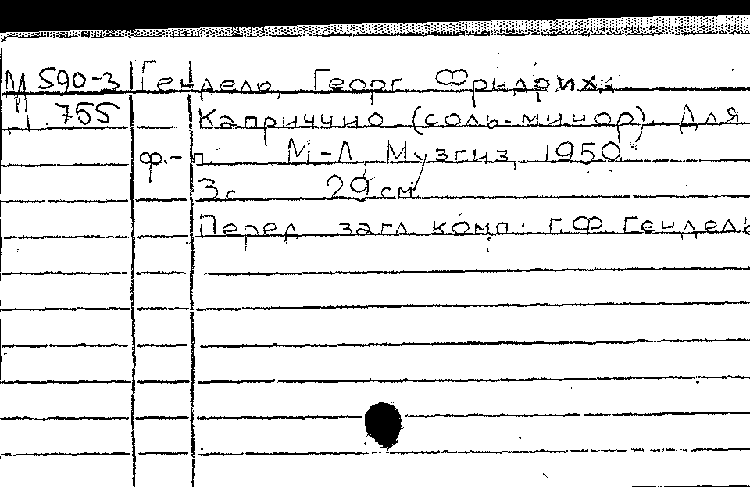 М 590-3 Гендель, Георг Фридрих.
755 Каприччио (соль-минор). Для
ф.-п. М-Л, Музгиз, 1950.
3 с. 29 см
Перед загл. комп.: Г.Ф. Гендель